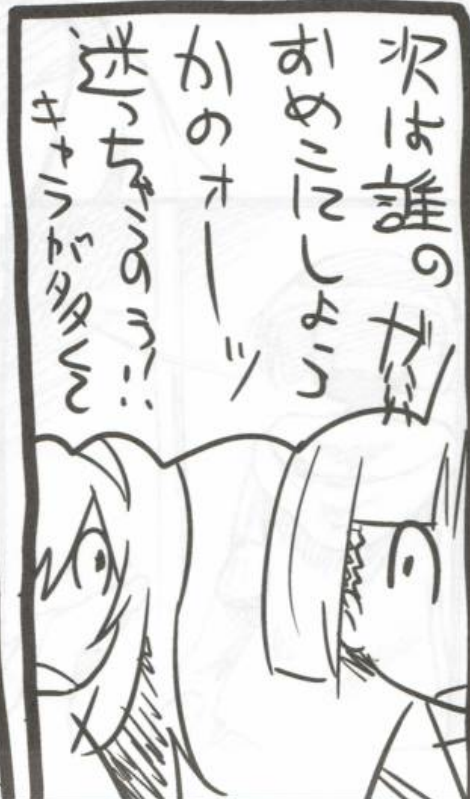 次は誰の
おめこにしよう
かのォーッ
迷っちゃうのう!!
キャラが多くて